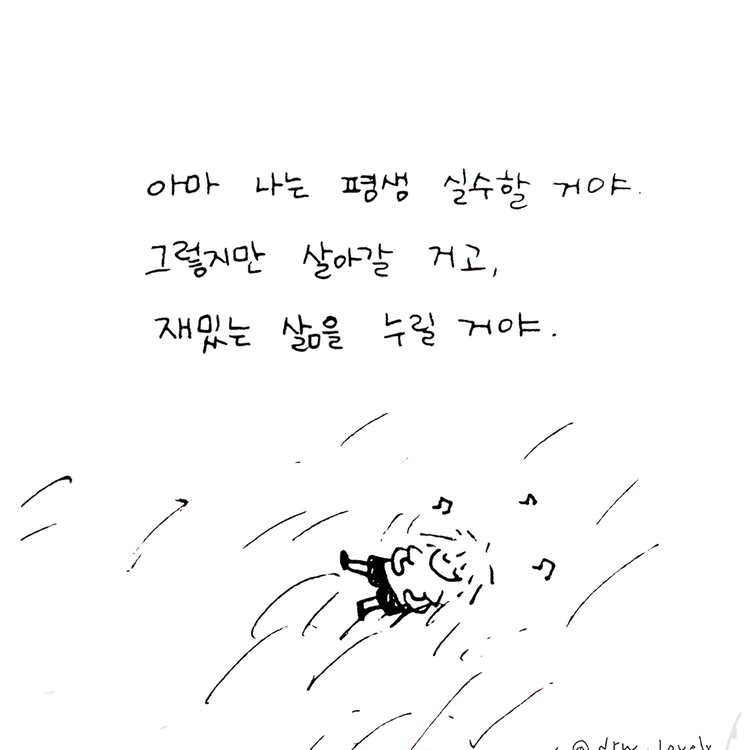 아마 나는 평생 실수할 거야.
그렇지만 살아갈 거고,
재밌는 삶을 누릴 거야.